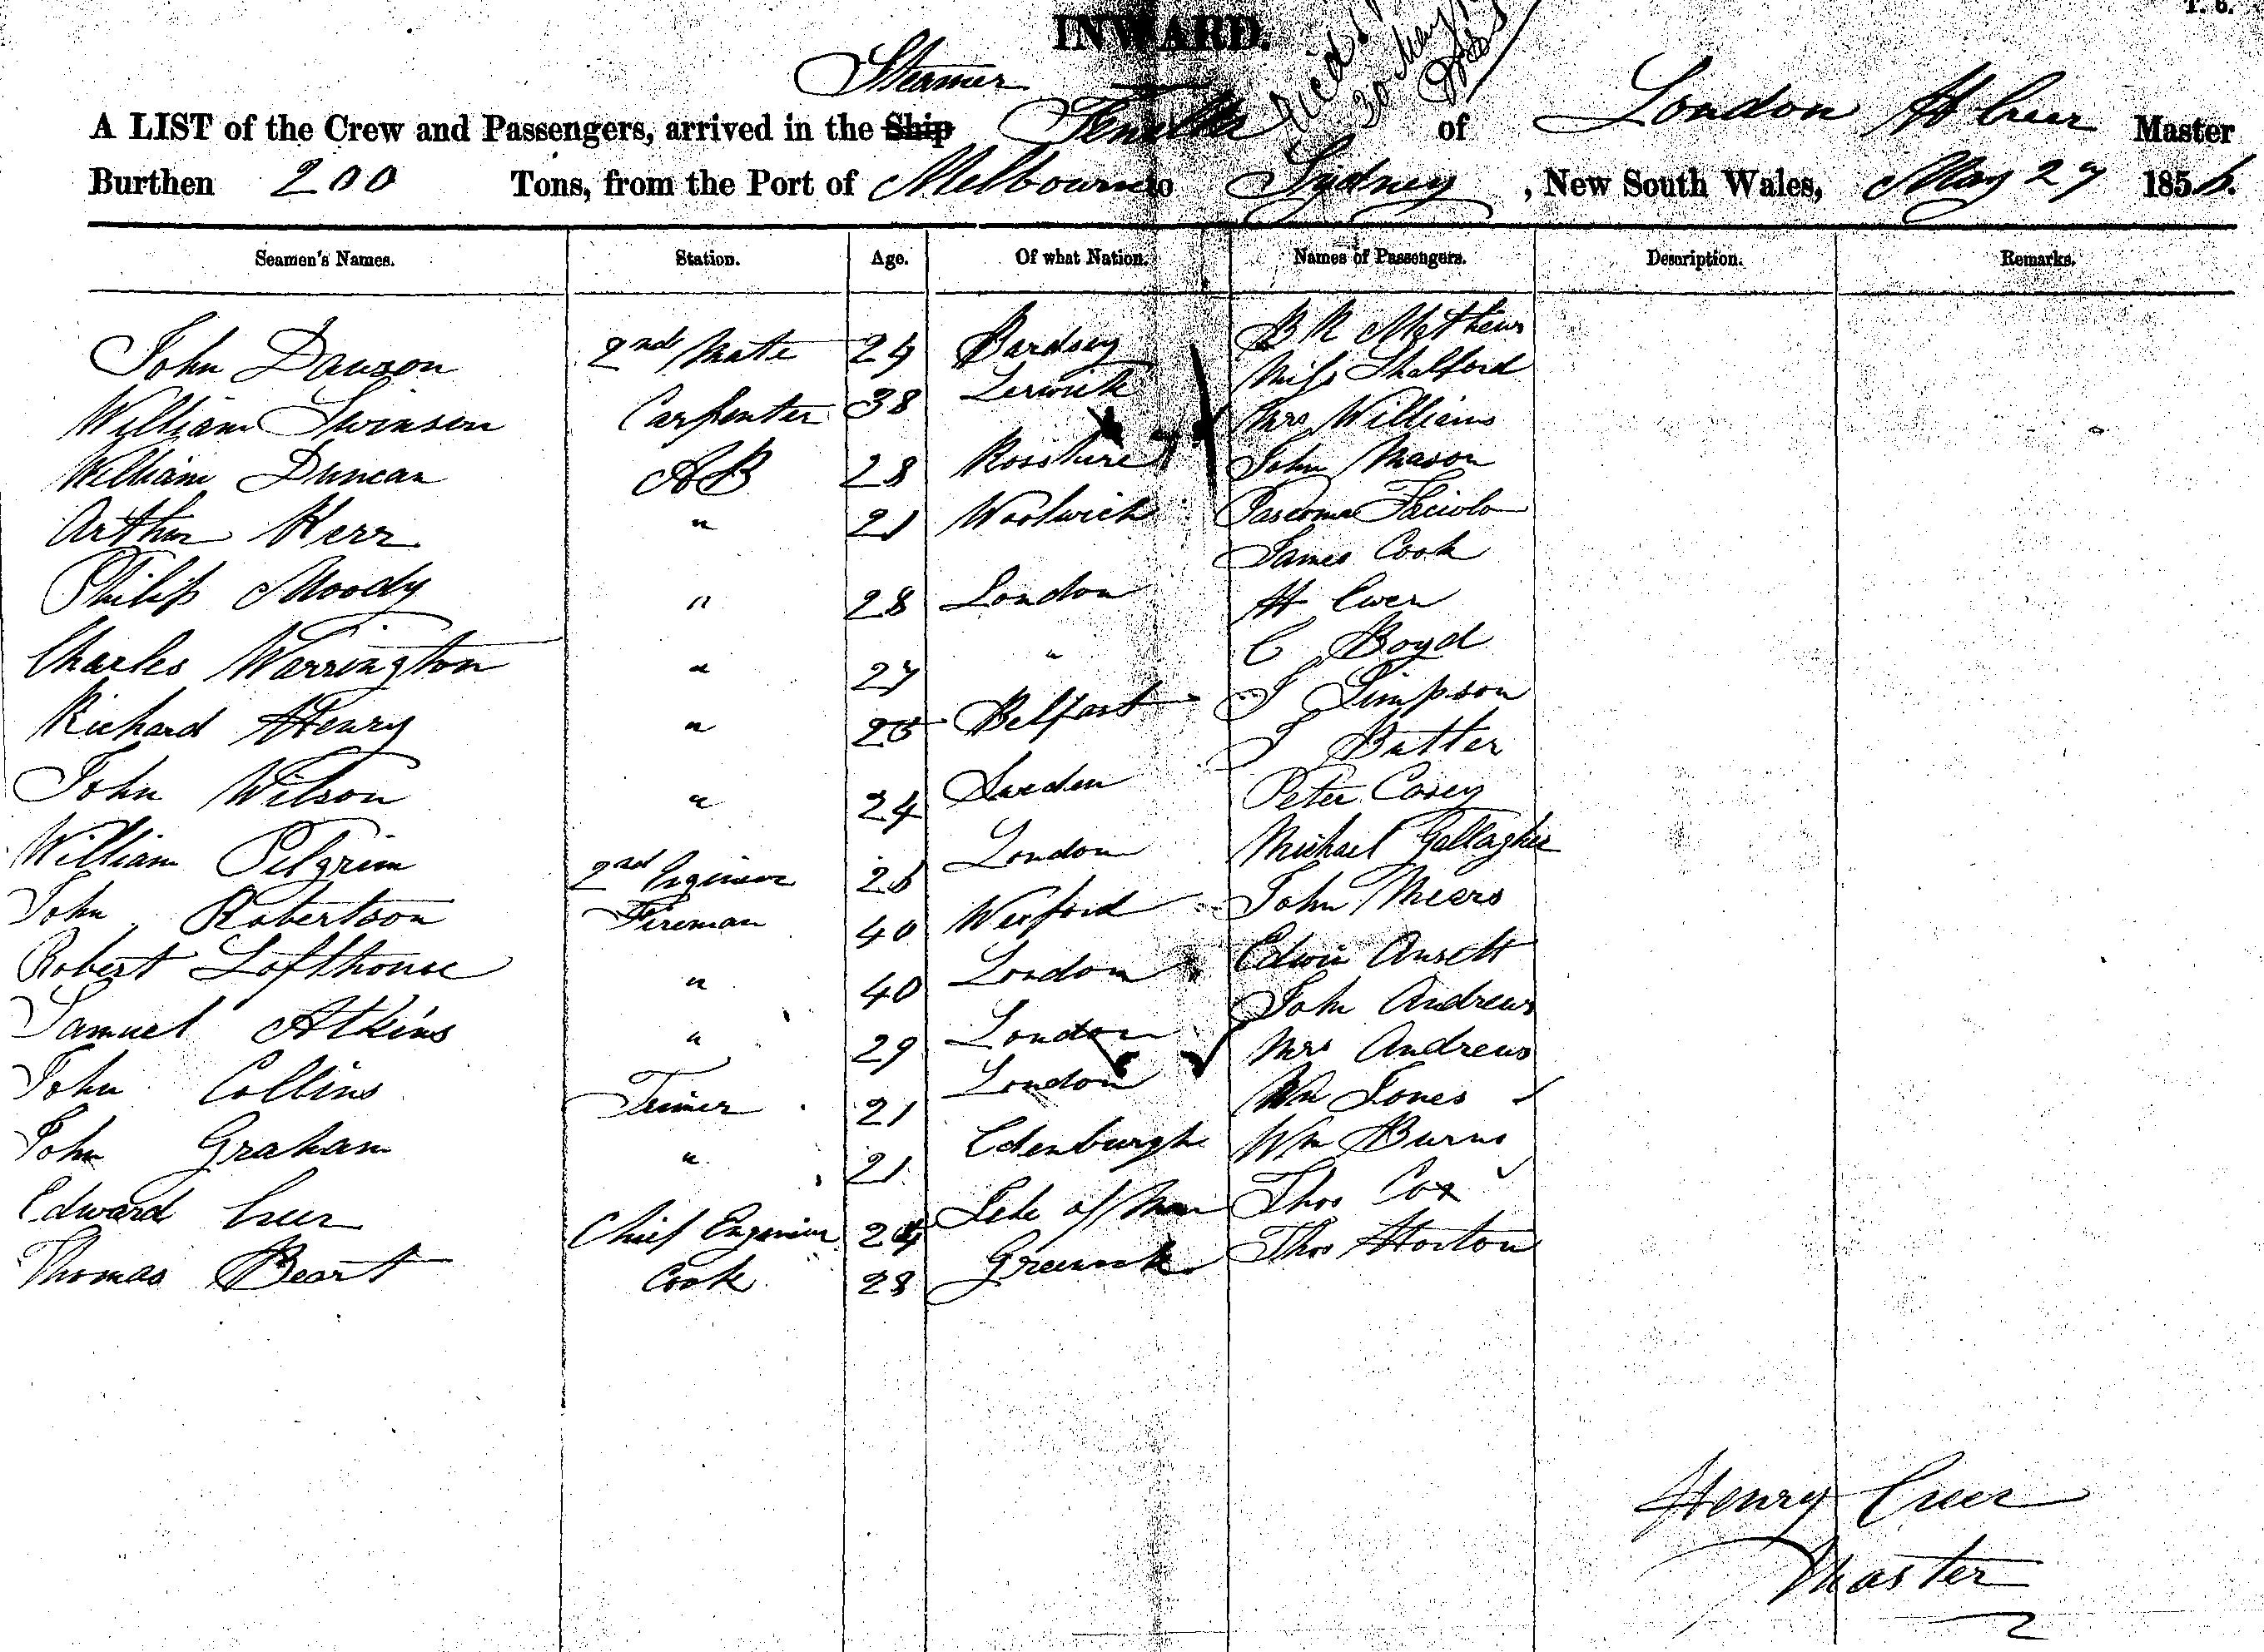 INWARD.
T. 6.
Steamer
30 May
A LIST of the Crew and Passengers, arrived in the Ship of London H Creer Master
Burthen 200 Tons, from the Port of Melbourne to Sydney, New South Wales, May 27 1856.
Seamen's Names. Station. Age. Of what Nation. Names of Passengers. Description. Remarks.
John Dawson 2nd Mate 24 Bardsey B R Mathews
Miss Shalford
William Swinson Carpenter 38 Lerwick Mrs Williams
William Duncan AB 28 Rosshire John Mason
Arthur Kerr " 21 Woolwich
James Cook
Philip Moody " 28 London H Ewer
C Boyd
Charles Warrington " 27 " J Simpson
Richard Henry " 25 Belfast J Butler
John Wilson " 24 Sweden Peter Casey
William Pilgrim 2nd Engineer 26 London Michael Gallagher
John Robertson Fireman 40 Wexford John Meers
Robert Lofthouse " 40 London Edwin Ansett
John Andrews
Samuel Atkins " 29 London Mrs Andrews
John Collins Trimer 21 London Wm Jones
John Graham " 21 Edenburgh Wm Burns
Edward Creer Chief Engenier 24 Isle of Man Thos Cox
Thomas Beart Cook 28 Greenock Thos Horton
Henry Creer
Master